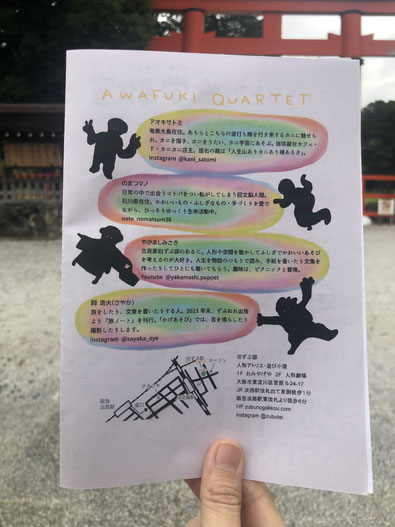 AWAFUKI QUARTET
アオキサトミ
奄美大島在住。あちらとこちらの波打ち際を行き来するカニに魅せら
れ、カニを描き、カニをうたい、カニ宇宙にあそぶ。珈琲屋台カフェ・
ド・カニカニ店主。座右の銘は「人生山ありカニあり横あるき」。
instagram @kani_satomi
のまつマノ
日常の中で出会うコトバをつい転がしてしまう回文脳人間。
石川県在住。かわいいもの・ふしぎなもの・手づくりを愛で
ながら、ひっそりゆっくり生命活動中。
note nomatsum36
やかましみさき
古民家旧ずぶ邸のあるじ。人形や空間を動かしてふしぎでかわいいあそび
を考えるのが大好き。人生を物語のつもりで読み、手紙を書いたり文集を
作ったりしてひとにも聴いてもらう。趣味は、ピクニックと冒険。
Youtube @yakamashi.puppet
岡 清火(さやか)
旅をしたり、文章を書いたりする人。2023 年末、ずぶぬれ出版
より『旅ノート』を刊行。「かげあそび」では、音を鳴らしたり
撮影したりします。
instagram @sayaka_eye
旧ずぶ邸
人形アトリエ・遊び小屋
1F おみやげや 2F 人形劇場
大阪市東淀川区菅原 6-24-17
JR 淡路駅改札出て東側徒歩1分
阪急淡路駅東改札より徒歩6分
HP zubunogakkou.com
instagram @zubutei
阪急
淡路駅
東口
JR
淡路駅